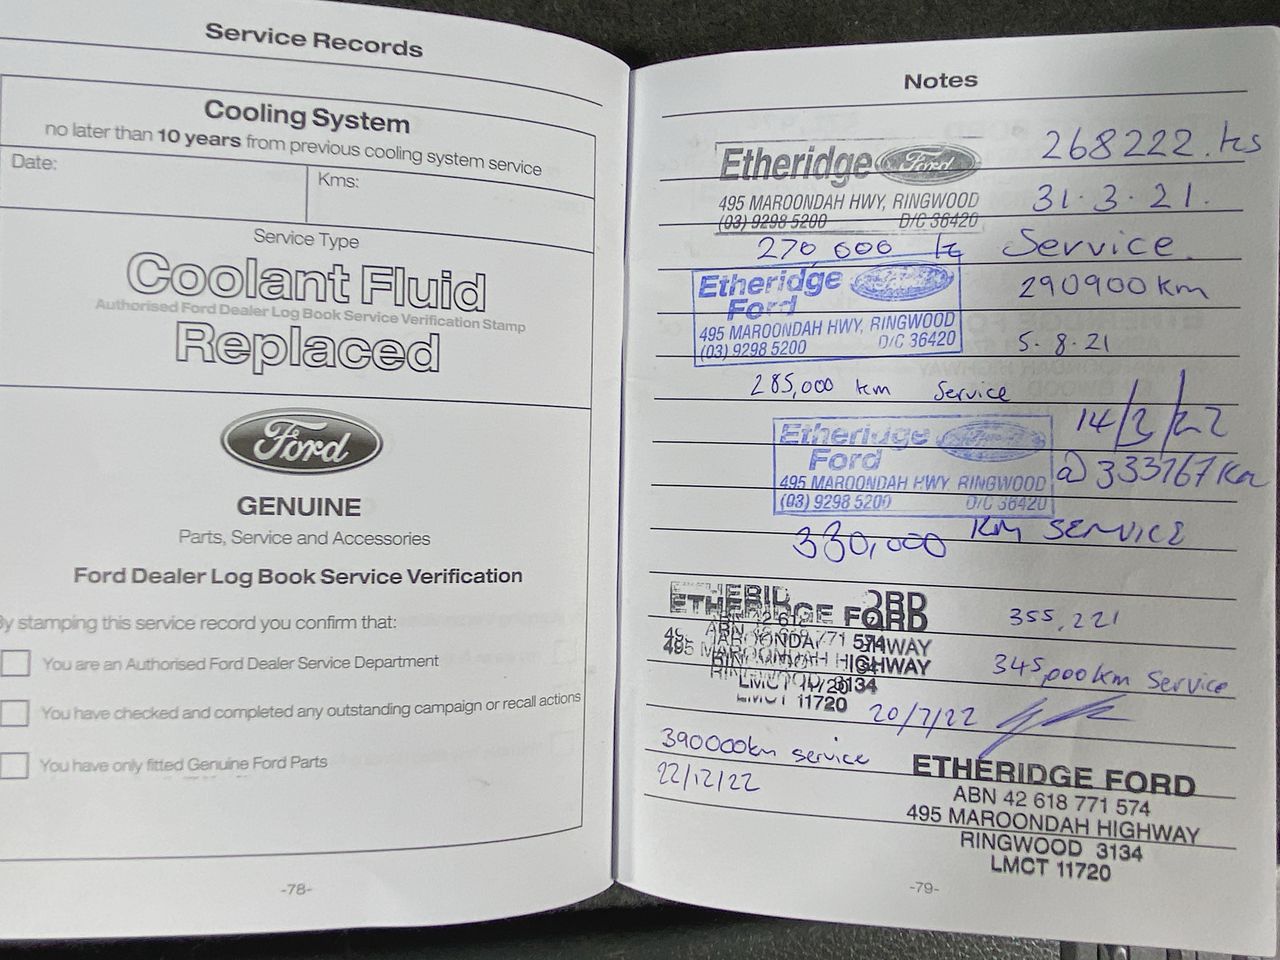 Service Records
Cooling System
no later than 10 years from previous cooling system service
Date:
Kms:
Service Type
Coolant Fluid
Authorised Ford Dealer Log Book Service Verification Stamp
Replaced
Ford
GENUINE
Parts, Service and Accessories
Ford Dealer Log Book Service Verification
By stamping this service record you confirm that:
You are an Authorised Ford Dealer Service Department
You have checked and completed any outstanding campaign or recall actions
You have only fitted Genuine Ford Parts
-78-
Notes
Etheridge Ford
268222.ks
495 MAROONDAH HWY, RINGWOOD
31.3.21.
(03) 9298 5200 D/C 36420
270,000 k Service
Etheridge
Ford
290900km
495 MAROONDAH HWY, RINGWOOD
(03) 9298 5200 D/C 36420
5.8.21
285,000 km Service
Etheridge
Ford
14/2/22
495 MAROONDAH HWY RINGWOOD
@ 333767Km
(03) 9298 5200 D/C 36420
330,000 KM SERVICE
ETHERIDGE FORD
ABN 42 618 771 574
355,221
495 MAROONDAH HIGHWAY
345,000km Service
RINGWOOD 3134
LMCT 11720
20/7/22
390000km service
22/12/22
ETHERIDGE FORD
ABN 42 618 771 574
495 MAROONDAH HIGHWAY
RINGWOOD 3134
LMCT 11720
-79-